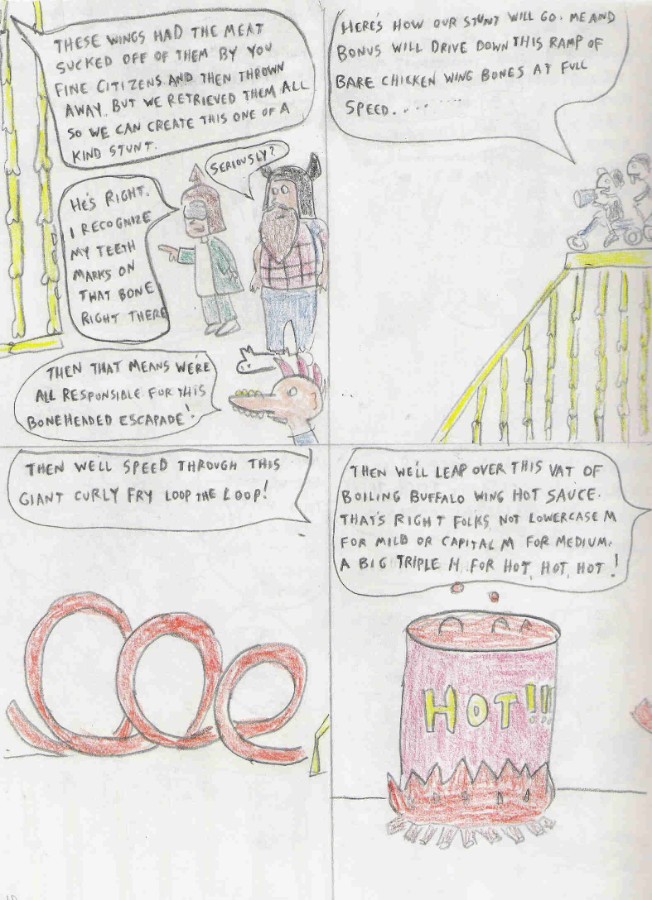 THESE WINGS HAD THE MEAT
SUCKED OFF OF THEM BY YOU
FINE CITIZENS AND THEN THROWN
AWAY, BUT WE RETRIEVED THEM ALL
SO WE CAN CREATE THIS ONE OF A
KIND STUNT.
SERIOUSLY?
HE'S RIGHT.
I RECOGNIZE
MY TEETH
MARKS ON
THAT BONE
RIGHT THERE
THEN THAT MEANS WE'RE
ALL RESPONSIBLE FOR THIS
BONEHEADED ESCAPADE!
HERE'S HOW OUR STUNT WILL GO. ME AND
BONUS WILL DRIVE DOWN THIS RAMP OF
BARE CHICKEN WING BONES AT FULL
SPEED........
THEN WELL SPEED THROUGH THIS
GIANT CURLY FRY LOOP THE LOOP!
THEN WE'LL LEAP OVER THIS VAT OF
BOILING BUFFALO WING HOT SAUCE.
THAT'S RIGHT FOLKS, NOT LOWERCASE M
FOR MILD OR CAPITAL M FOR MEDIUM,
A BIG TRIPLE H FOR HOT, HOT, HOT!
HOT!!